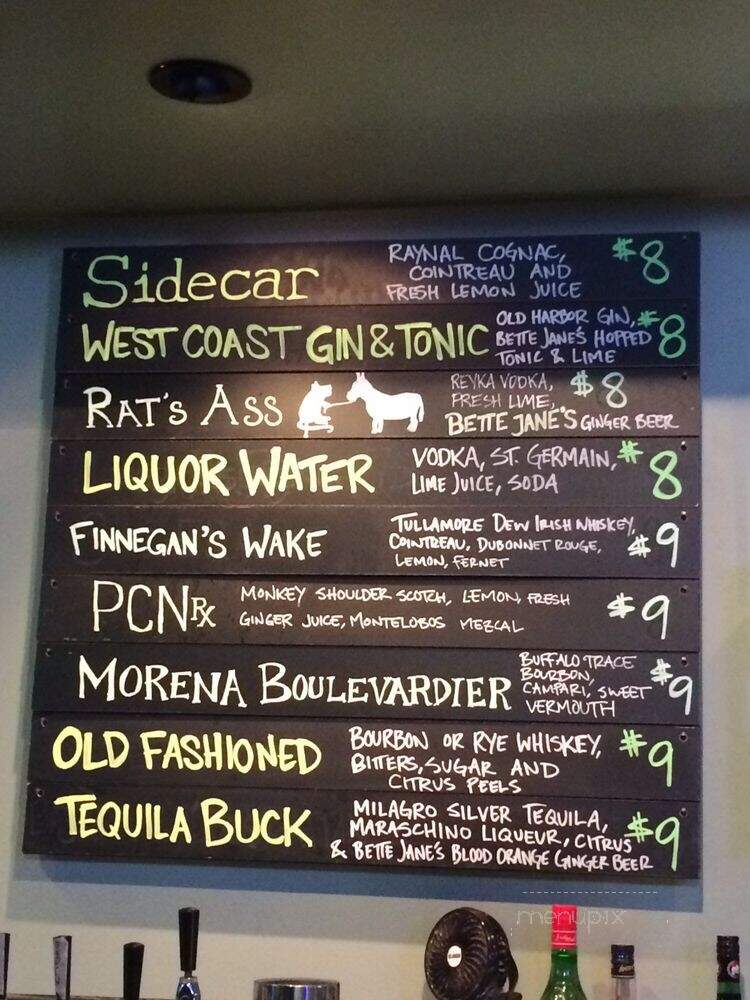 Sidecar
RAYNAL COGNAC,
COINTREAU AND
FRESH LEMON JUICE
$8
WEST COAST GIN & TONIC
OLD HARBOR GIN,
BETTE JANE'S HOPPED
TONIC & LIME
$8
RAT'S ASS
REYKA VODKA,
FRESH LIME,
BETTE JANE'S GINGER BEER
$8
LIQUOR WATER
VODKA, ST. GERMAIN,
LIME JUICE, SODA
$8
FINNEGAN'S WAKE
TULLAMORE DEW IRISH WHISKEY,
COINTREAU, DUBONNET ROUGE,
LEMON, FERNET
$9
PCNRx
MONKEY SHOULDER SCOTCH, LEMON, FRESH
GINGER JUICE, MONTELOBOS MEZCAL
$9
MORENA BOULEVARDIER
BUFFALO TRACE
BOURBON,
CAMPARI, SWEET
VERMOUTH
$9
OLD FASHIONED
BOURBON OR RYE WHISKEY,
BITERS, SUGAR AND
CITRUS PEELS
$9
TEQUILA BUCK
MILAGRO SILVER TEQUILA,
MARASCHINO LIQUEUR, CITRUS
& BETTE JANE'S BLOOD ORANGE GINGER BEER
$9
menupix